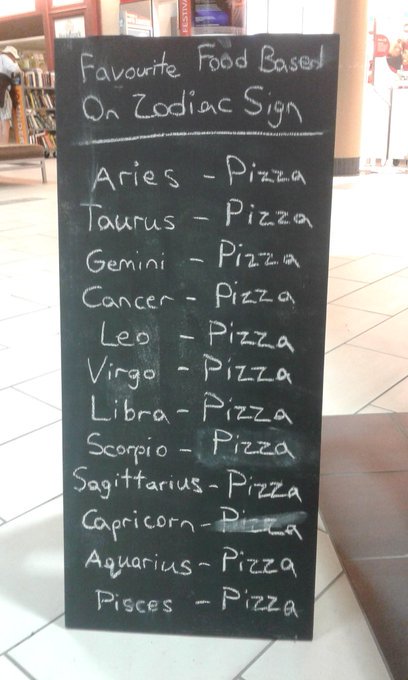 FESTIVAL
Favourite Food Based
On Zodiac Sign
Aries - Pizza
Taurus - Pizza
Gemini - Pizza
Cancer - Pizza
Leo - Pizza
Virgo - Pizza
Libra - Pizza
Scorpio - Pizza
Sagittarius - Pizza
Capricorn - Pizza
Aquarius - Pizza
Pisces - Pizza